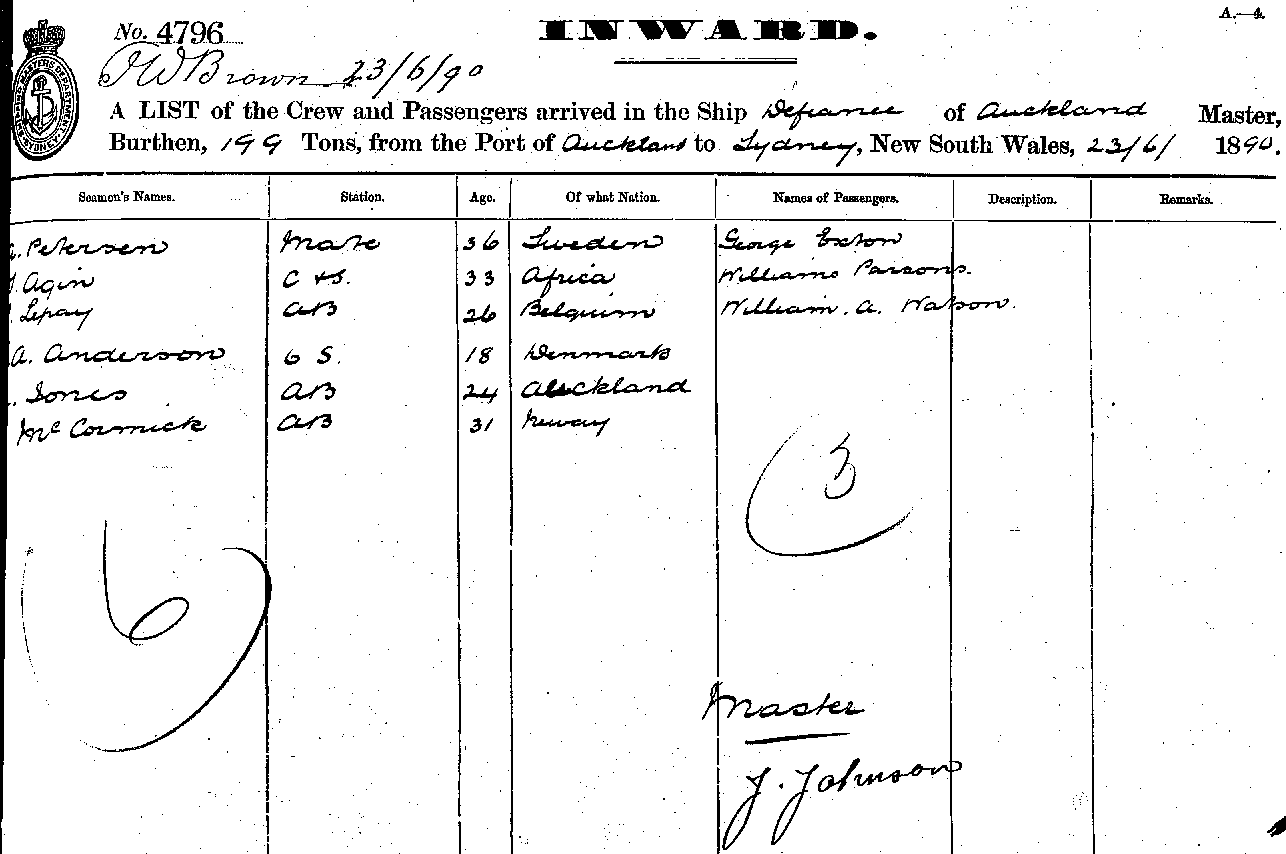 A.—4.
No. 4796
INWARD.
J W Brown 23/6/90
A LIST of the Crew and Passengers arrived in the Ship Defiance of Auckland Master,
Burthen, 199 Tons, from the Port of Auckland to Sydney, New South Wales, 23/6/ 1890.
Seamen's Names. Station. Age. Of what Nation. Names of Passengers. Description. Remarks.
Petersen Mate 36 Sweden George Exton
Agin C & S. 33 Africa Williams Parsons.
Lepay AB 26 Belguim William. A. Watson.
A. Anderson O S. 18 Denmark
Jones AB 24 Auckland
Mc Cormick AB 31 Newry
3
6
Master
J. Johnson